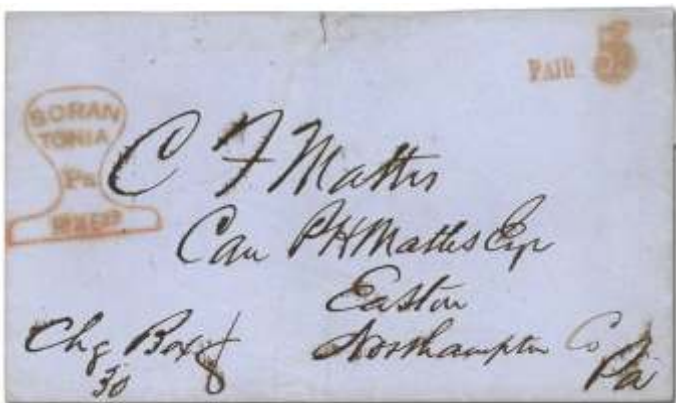 PAID 5
SCRAN
TONIA
Pa
C F Mattes
Care P H Mattes Esqr
Easton
Northampton Co
Pa
Chg Box 8
30